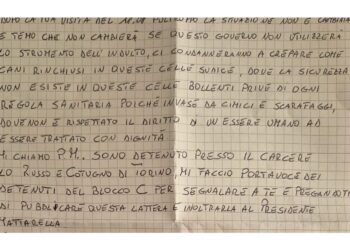 DOPO LA TUA VISITA DEL PURTROPPO LA SITUAZIONE NON È CAMBIATA
E TEMO CHE NON CAMBIERÀ SE QUESTO GOVERNO NON UTILIZZERÀ
LO STRUMENTO DELL'INDULTO, CI CONDANNERANNO A CREPARE COME
CANI RINCHIUSI IN QUESTE CELLE SUDICE, DOVE LA SICUREZZA
NON ESISTE IN QUESTE CELLE BOLLENTI PRIVE DI OGNI
REGOLA SANITARIA POICHÉ INVASE DA CIMICI E SCARAFAGGI,
DOVE NON È RISPETTATO IL DIRITTO DI UN ESSERE UMANO AD
ESSERE TRATTATO CON DIGNITÀ.
MI CHIAMO P.M., SONO DETENUTO PRESSO IL CARCERE
LO RUSSO E COTUGNO DI TORINO, MI FACCIO PORTAVOCE DEI
DETENUTI DEL BLOCCO C PER SEGNALARE A TE E PREGANDOTI
DI PUBBLICARE QUESTA LATTERA E INOLTRARLA AL PRESIDENTE
MATTARELLA